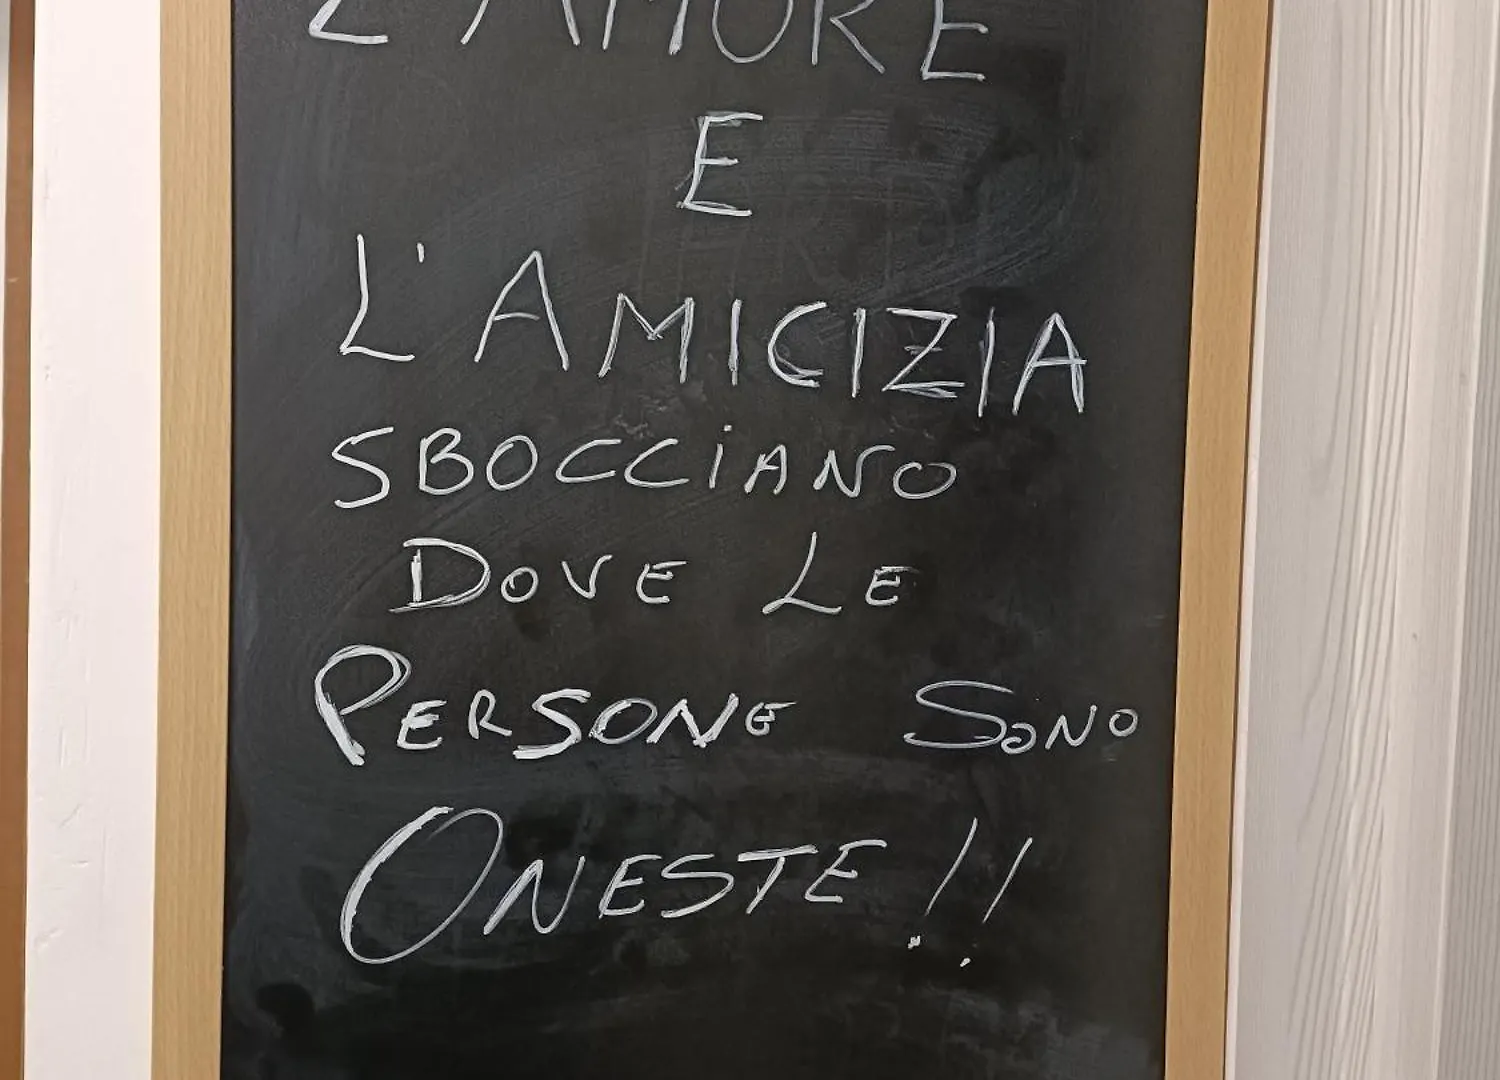 L'AMORE
E
L'AMICIZIA
SBOCCIANO
DOVE LE
PERSONE SONO
ONESTE!!